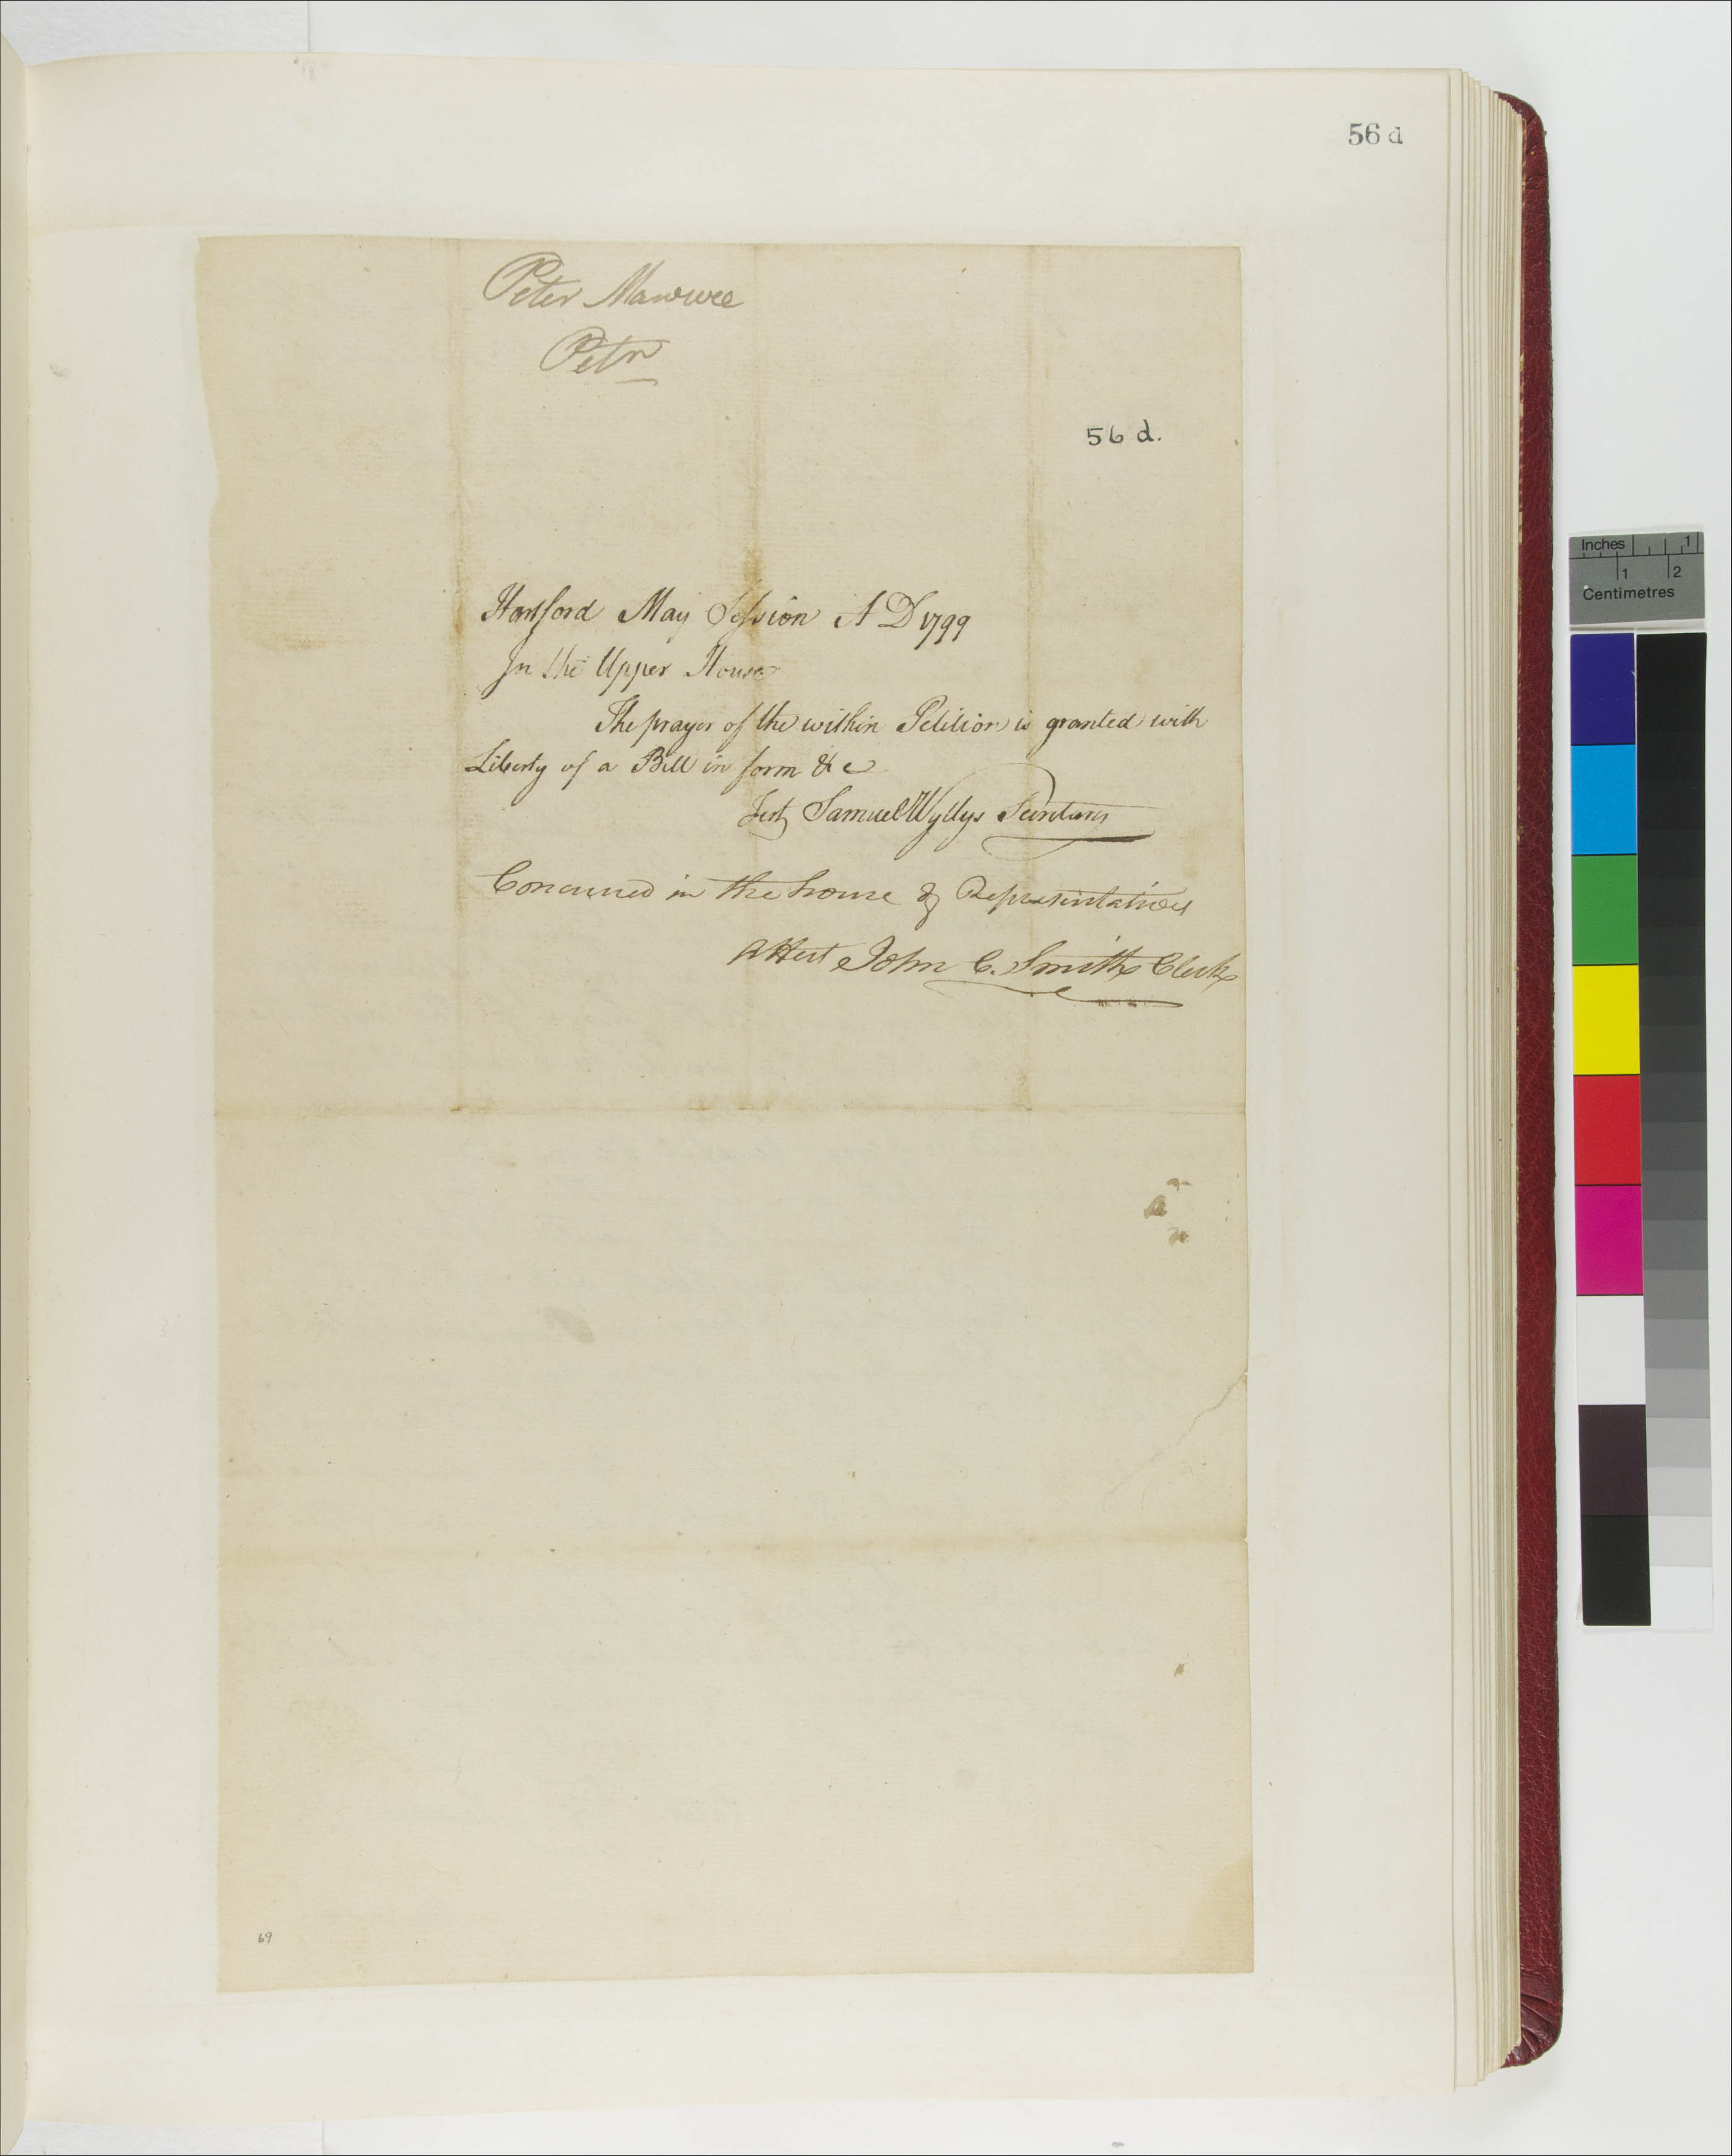 56 d
Peter Mawwee
Petn
56 d.
Hartford May Session A D 1799
In the Upper House
The prayer of the within Petition is granted with
Liberty of a Bill in form &c
Test Samuel Wyllys Secretary
Concurred in the house of Representatives
Attest John C. Smith Clerk
69
Inches 1
1 2
Centimetres